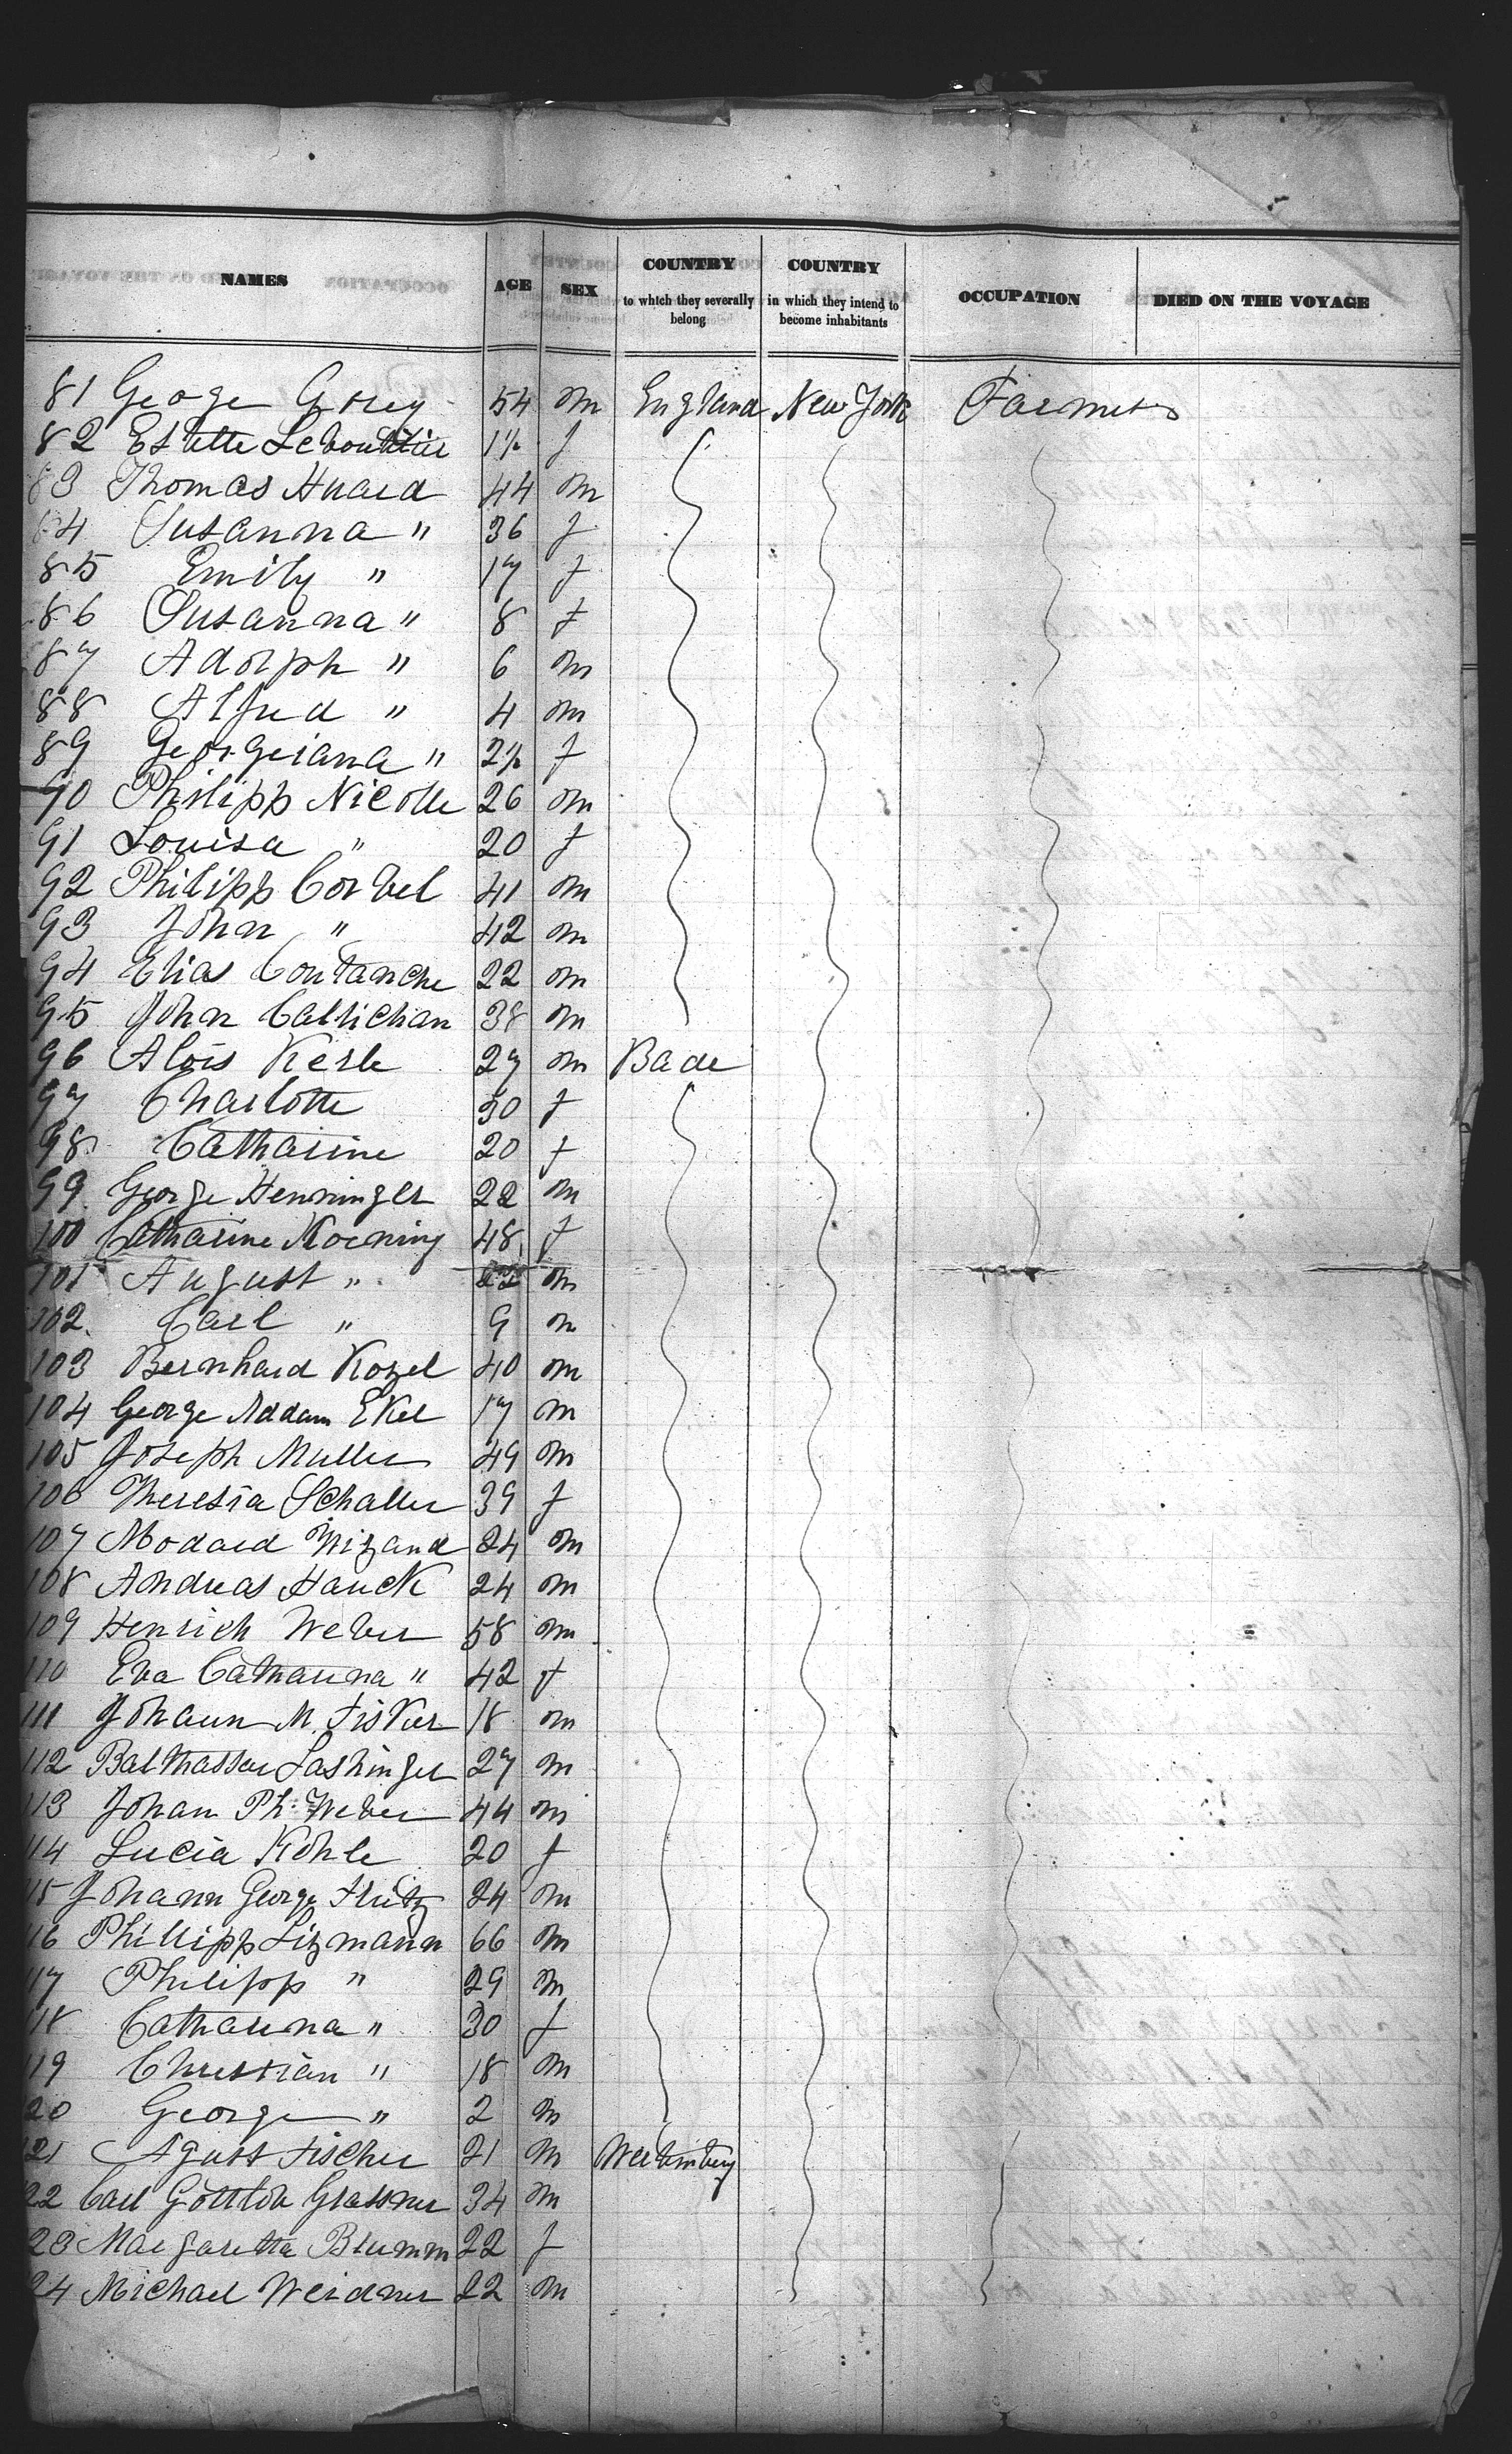 NAMES AGE SEX COUNTRY to which they severally belong COUNTRY in which they intend to become inhabitants OCCUPATION DIED ON THE VOYAGE
81 George Gorey 54 m England New York Farmers
82 Estelle Leboutillier 1½ f
83 Thomas Huard 44 m
84 Susanna " 36 f
85 Emily " 17 f
86 Susanna " 8 f
87 Adolph " 6 m
88 Alfred " 4 m
89 Georgeiana " 2½ f
90 Philipp Nicolle 26 m
91 Louisa " 20 f
92 Philipp Corbel 41 m
93 John " 42 m
94 Elias Coutanche 22 m
95 John Callichan 38 m
96 Alois Kerle 27 m Bade
97 Charlotte 30 f
98 Catharine 20 f
99 George Henninger 22 m
100 Catharine Koerning 48 f
101 August " 22 m
102 Carl " 9 m
103 Bernhard Kozel 40 m
104 George Addam Ekel 17 m
105 Joseph Muller 49 m
106 Theresia Schaller 39 f
107 Modard 24 m
108 Andreas Hauck 24 m
109 Henrich Weber 58 m
110 Eva Catharina " 42 f
111 Johann M. Fisker 18 m
112 Balthassar Lashinger 27 m
113 Johan Ph: Weber 44 m
114 Lucia Kohle 20 f
115 Johann George 24 m
116 Phillipp Lizmann 66 m
117 Philipp " 29 m
118 Catharina " 30 f
119 Christian " 18 m
20 George " 2 m
121 Agust Fischer 21 m Wertemberg
22 Carl Gottlob Grassner 34 m
23 Margaretta Blumm 22 f
24 Michael Weidner 22 m